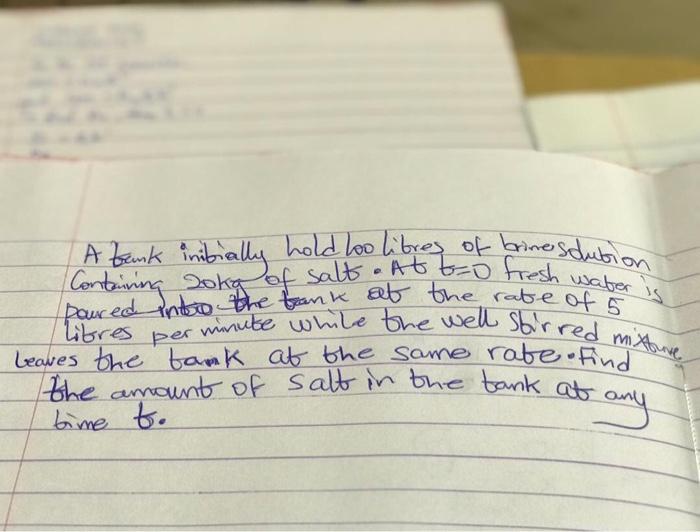 A tank initially hold 100 libres of brine solution
Containing 20kg of salt. At t=0 fresh water is
poured into the tank at the rate of 5
libres per minute while the well stirred mixture
leaves the tank at the same rate. Find
the amount of salt in the tank at any
time t.